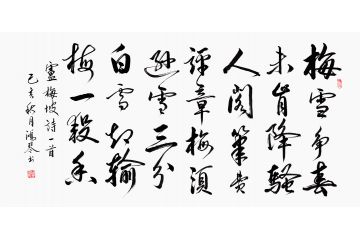 梅雪争春
未肯降騷
人閣筆费
评章梅须
逊雪三分
白雪却输
梅一段香
盧梅坡詩一首
己亥秋月鴻琴书